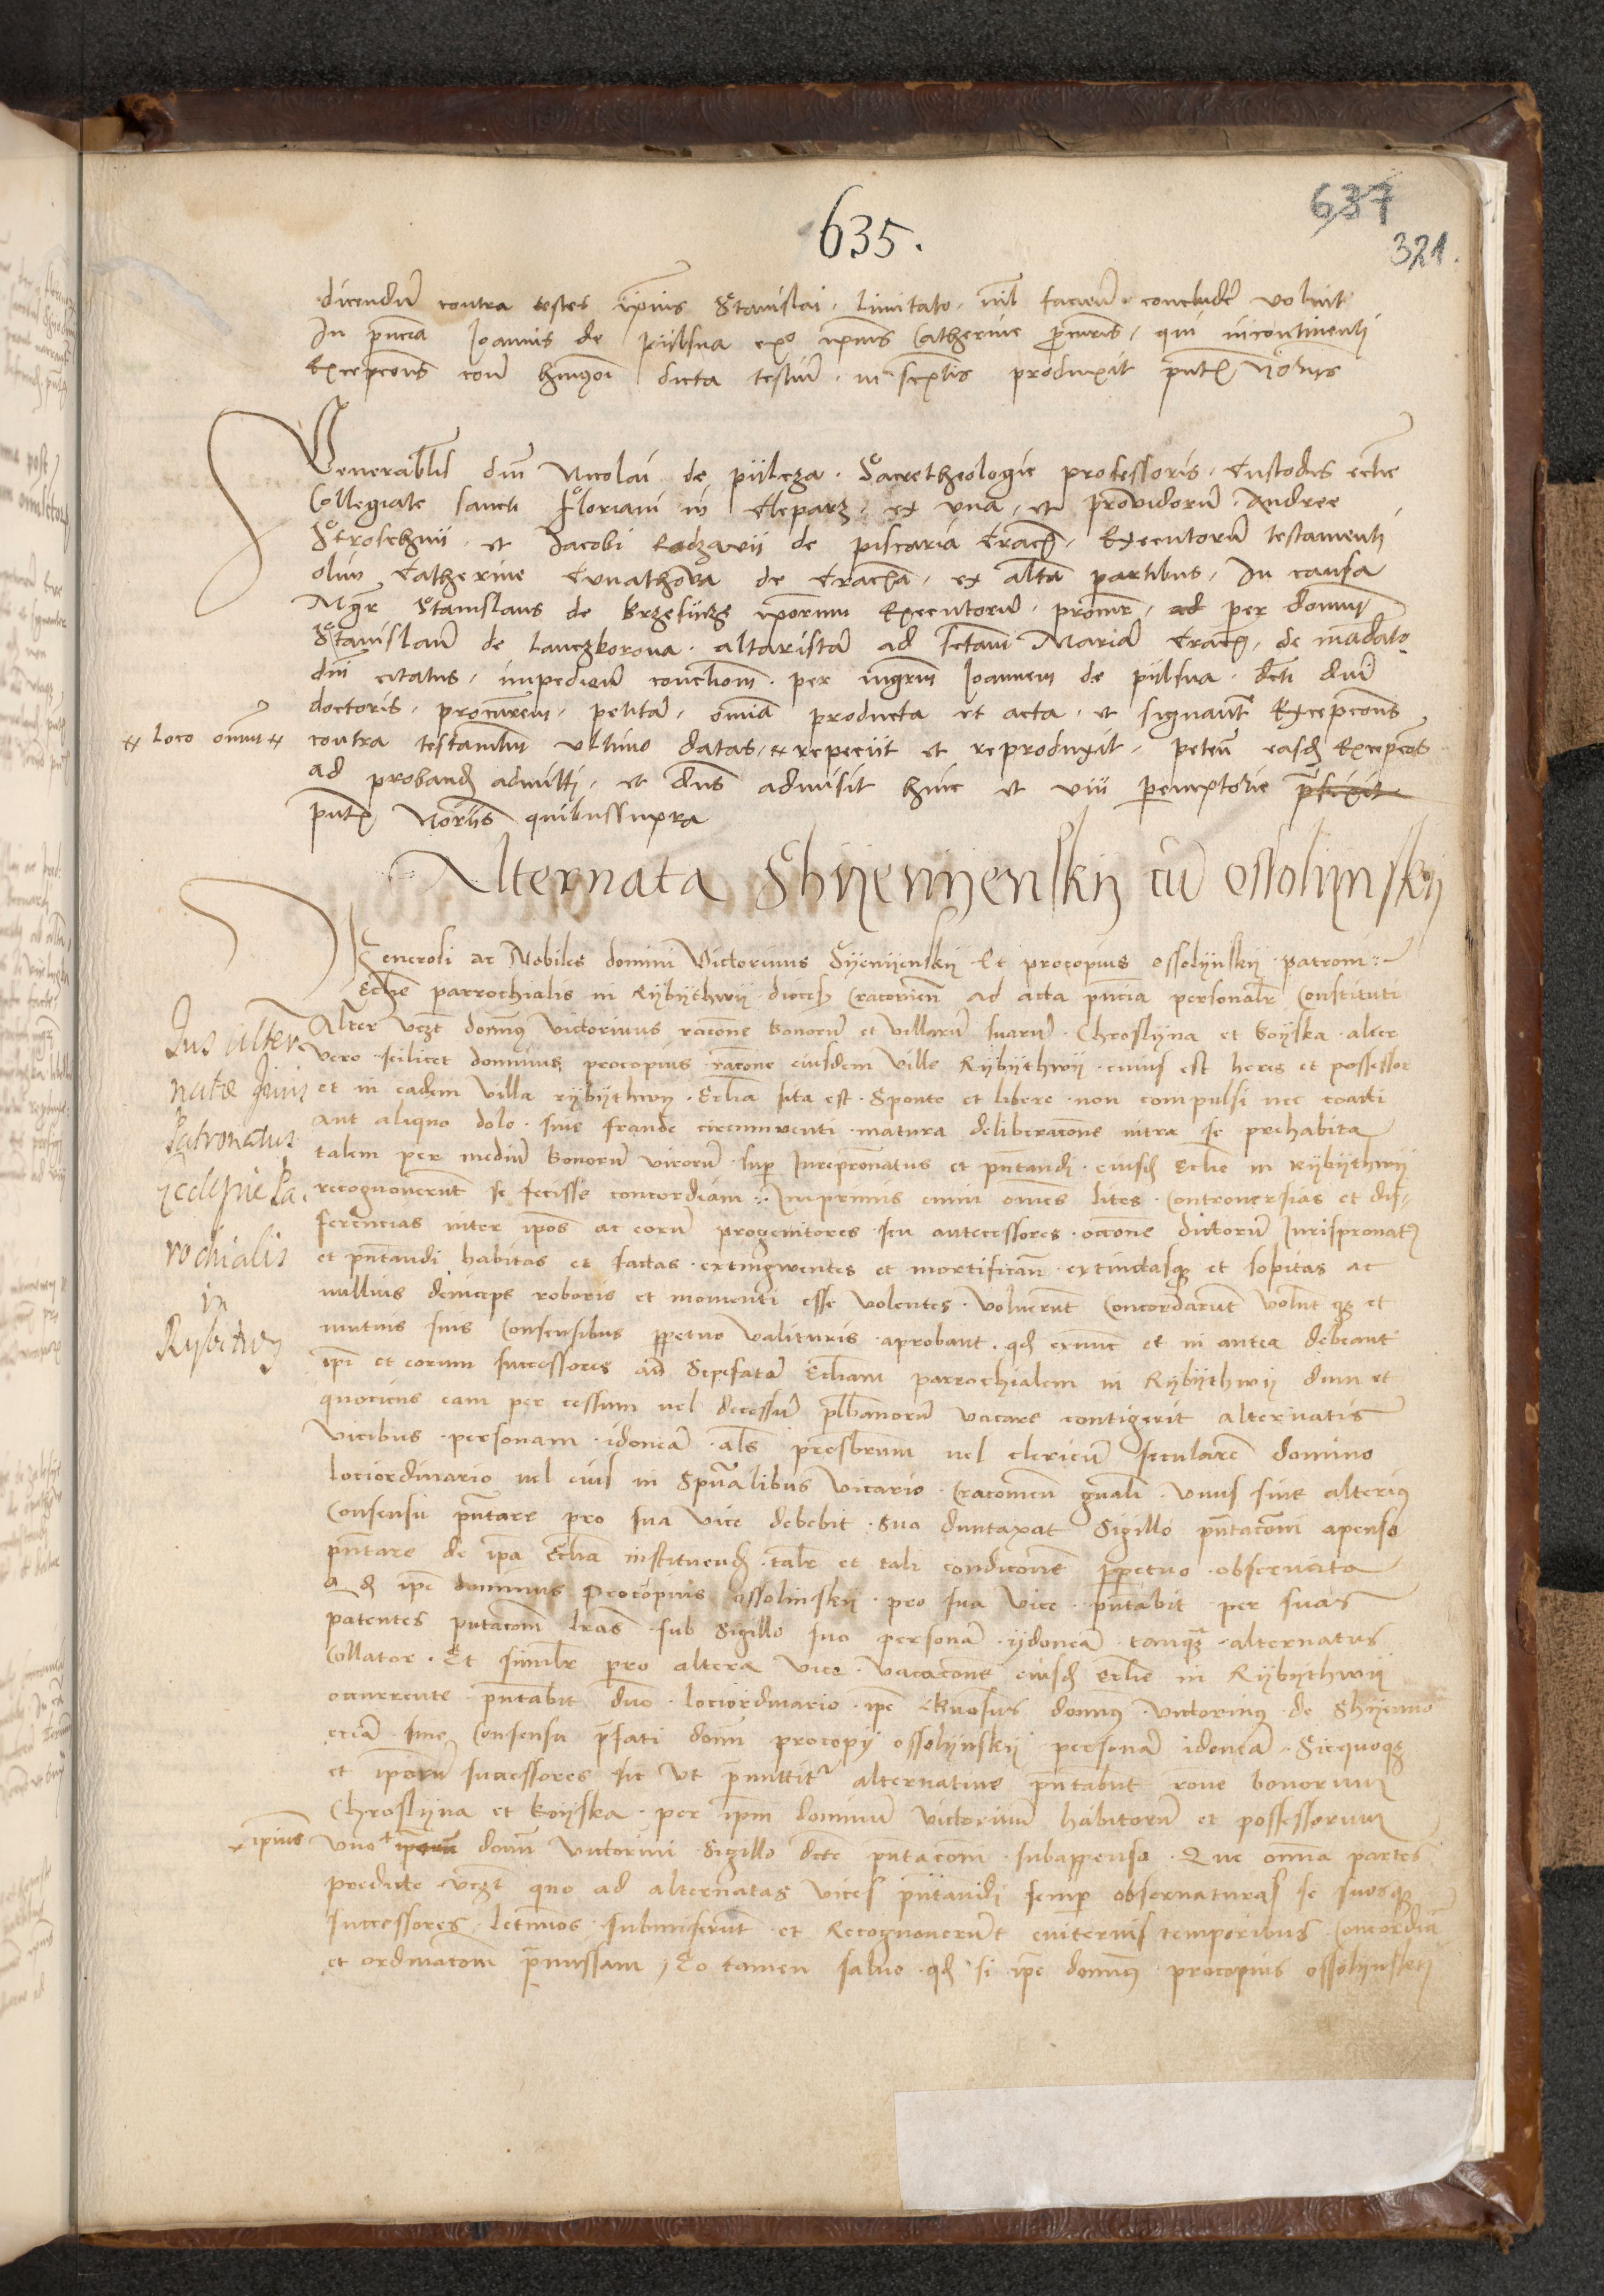 637
635.
321.
dicendum contra testes ipsius Stanislai, limitato, nil faciendum concludere voluit
In pncia Joannis de pilsna ex° ipsius Catherine procuris, qui incontinenti
Excepcons contra dicta testium in scriptis produxit pntibus
Venerabilis dni Nicolai de pilcza. Sacretheologie professoris, Custodis eccle
Collegiate sancti Floriani in Cleparz, ex una, et providorum Andree
et Jacobi de piscaria Crac, Executorum testamenti
olim Catherine de Cracovia, ex altera partibus, In causa
Mgr Stanislaus de ipsorum Executorum, procur, ad per domum
Stanislaum de Lanczkorona. altaristam ad sctam Mariam Crac, de mandato
dni citatus, impediendum conclusionem. per mgrm Joannem de pilsna. dicti dni
doctoris, procurem, petitam, omnia producta et acta, et signanter Excepcons
Loco omnium
contra testamentum ultimo datas, repeciit et reproduxit, petens easdem Excepcons
ad probandum admitti, et dns admisit hinc et viii peremptorie prefixit
pntibus Notriis quibussupra
Alternata Shyenyenskij cu ossolijnskij
Generosi ac Nobiles domini Victorinus Syenyenskij Et procopius ossolynskij patroni
Jus alter
natæ Juris
Patronatus
Ecclesiæ Pa
rochialis
in
Rybitwy
Ecclie parrochialis in Rybythwij diocesis Cracovien ad acta pncia personalr Constituti
Alter vczt domnus victorinus racone bonorum et villarum suarum. Chroslyna et boyska. alter
vero scilicet dominus procopius racone eiusdem ville Rybythwij cuius est heres et possessor
et in eadem villa rybythwy. Ecclia sita est. Sponte et libere non compulsi nec coacti
aut aliquo dolo sive fraude circumventi matura deliberacone intra se prehabita
talem per medium bonorum virorum. sup Jurepronatus et pntandi. eiusd Ecclie in Rybythwij
recognoverunt se fecisse concordiam. Inprimis enim omnes lites. Controversias et dif
ferencias inter ipsos ac eorum progenitores seu antecessores occone dictorum Jurispronatus
et pntandi habitas et factas. extingwentes et mortifican. extinctasque et sopitas ac
nullius deinceps roboris et momenti esse volentes. voluerunt Concordarunt volunt et
mutuis suis Consensibus perpetuo valituris aprobant. quod exnunc et in antea debeant
ipsi et eorum successores ad Sepefatam Eccliam parrochialem in Rybythwij dum et
quociens eam per cessum vel decessum plebanorum vacare contigerit alternatis
vicibus. personam idoneam als presbrum vel clericum secularem domino
lociordinario vel eius in Spualibus vicario Cracovien gnali. unus sine alterius
Consensu pntare pro sua vice debebit. Suo duntaxat Sigillo pntaconi apenso
pntare de ipsa Ecclia instituend. talr et tali condicone perpetuo observata
quod ipse dominus Procopius ossolinskij. pro sua vice. pntabit per suas
patentes pntacom lras sub Sigillo suo personam ydoneam. tanquam alternatus
Collator. Et similr pro altera vice vacacone eiusd Ecclie in Rybythwij
occurrente pntabit dno. lociordinario ipse domnus victorinus de Shyenno
eciam sine Consensu pfati domini procopy ossolynskij personam idoneam. Sicquoque
et ipsorum successores sic ut pmittitur alternative pntabunt rone bonorum
Chroslyna et boyska. per ipsum dominum victorinum habitorum et possessorum
ipsius
uno ipsorum domni victorini Sigillo dicte pntacom subappenso. Que omnia partes
predicte vczt quo ad alternatas vices pntandi semper observaturas se suosque
successores submiserunt et Recognoverunt eviternis temporibus Concordiam
et ordinacom pmissam, Eo tamen salvo quod si ipse domnus procopius ossolynskij